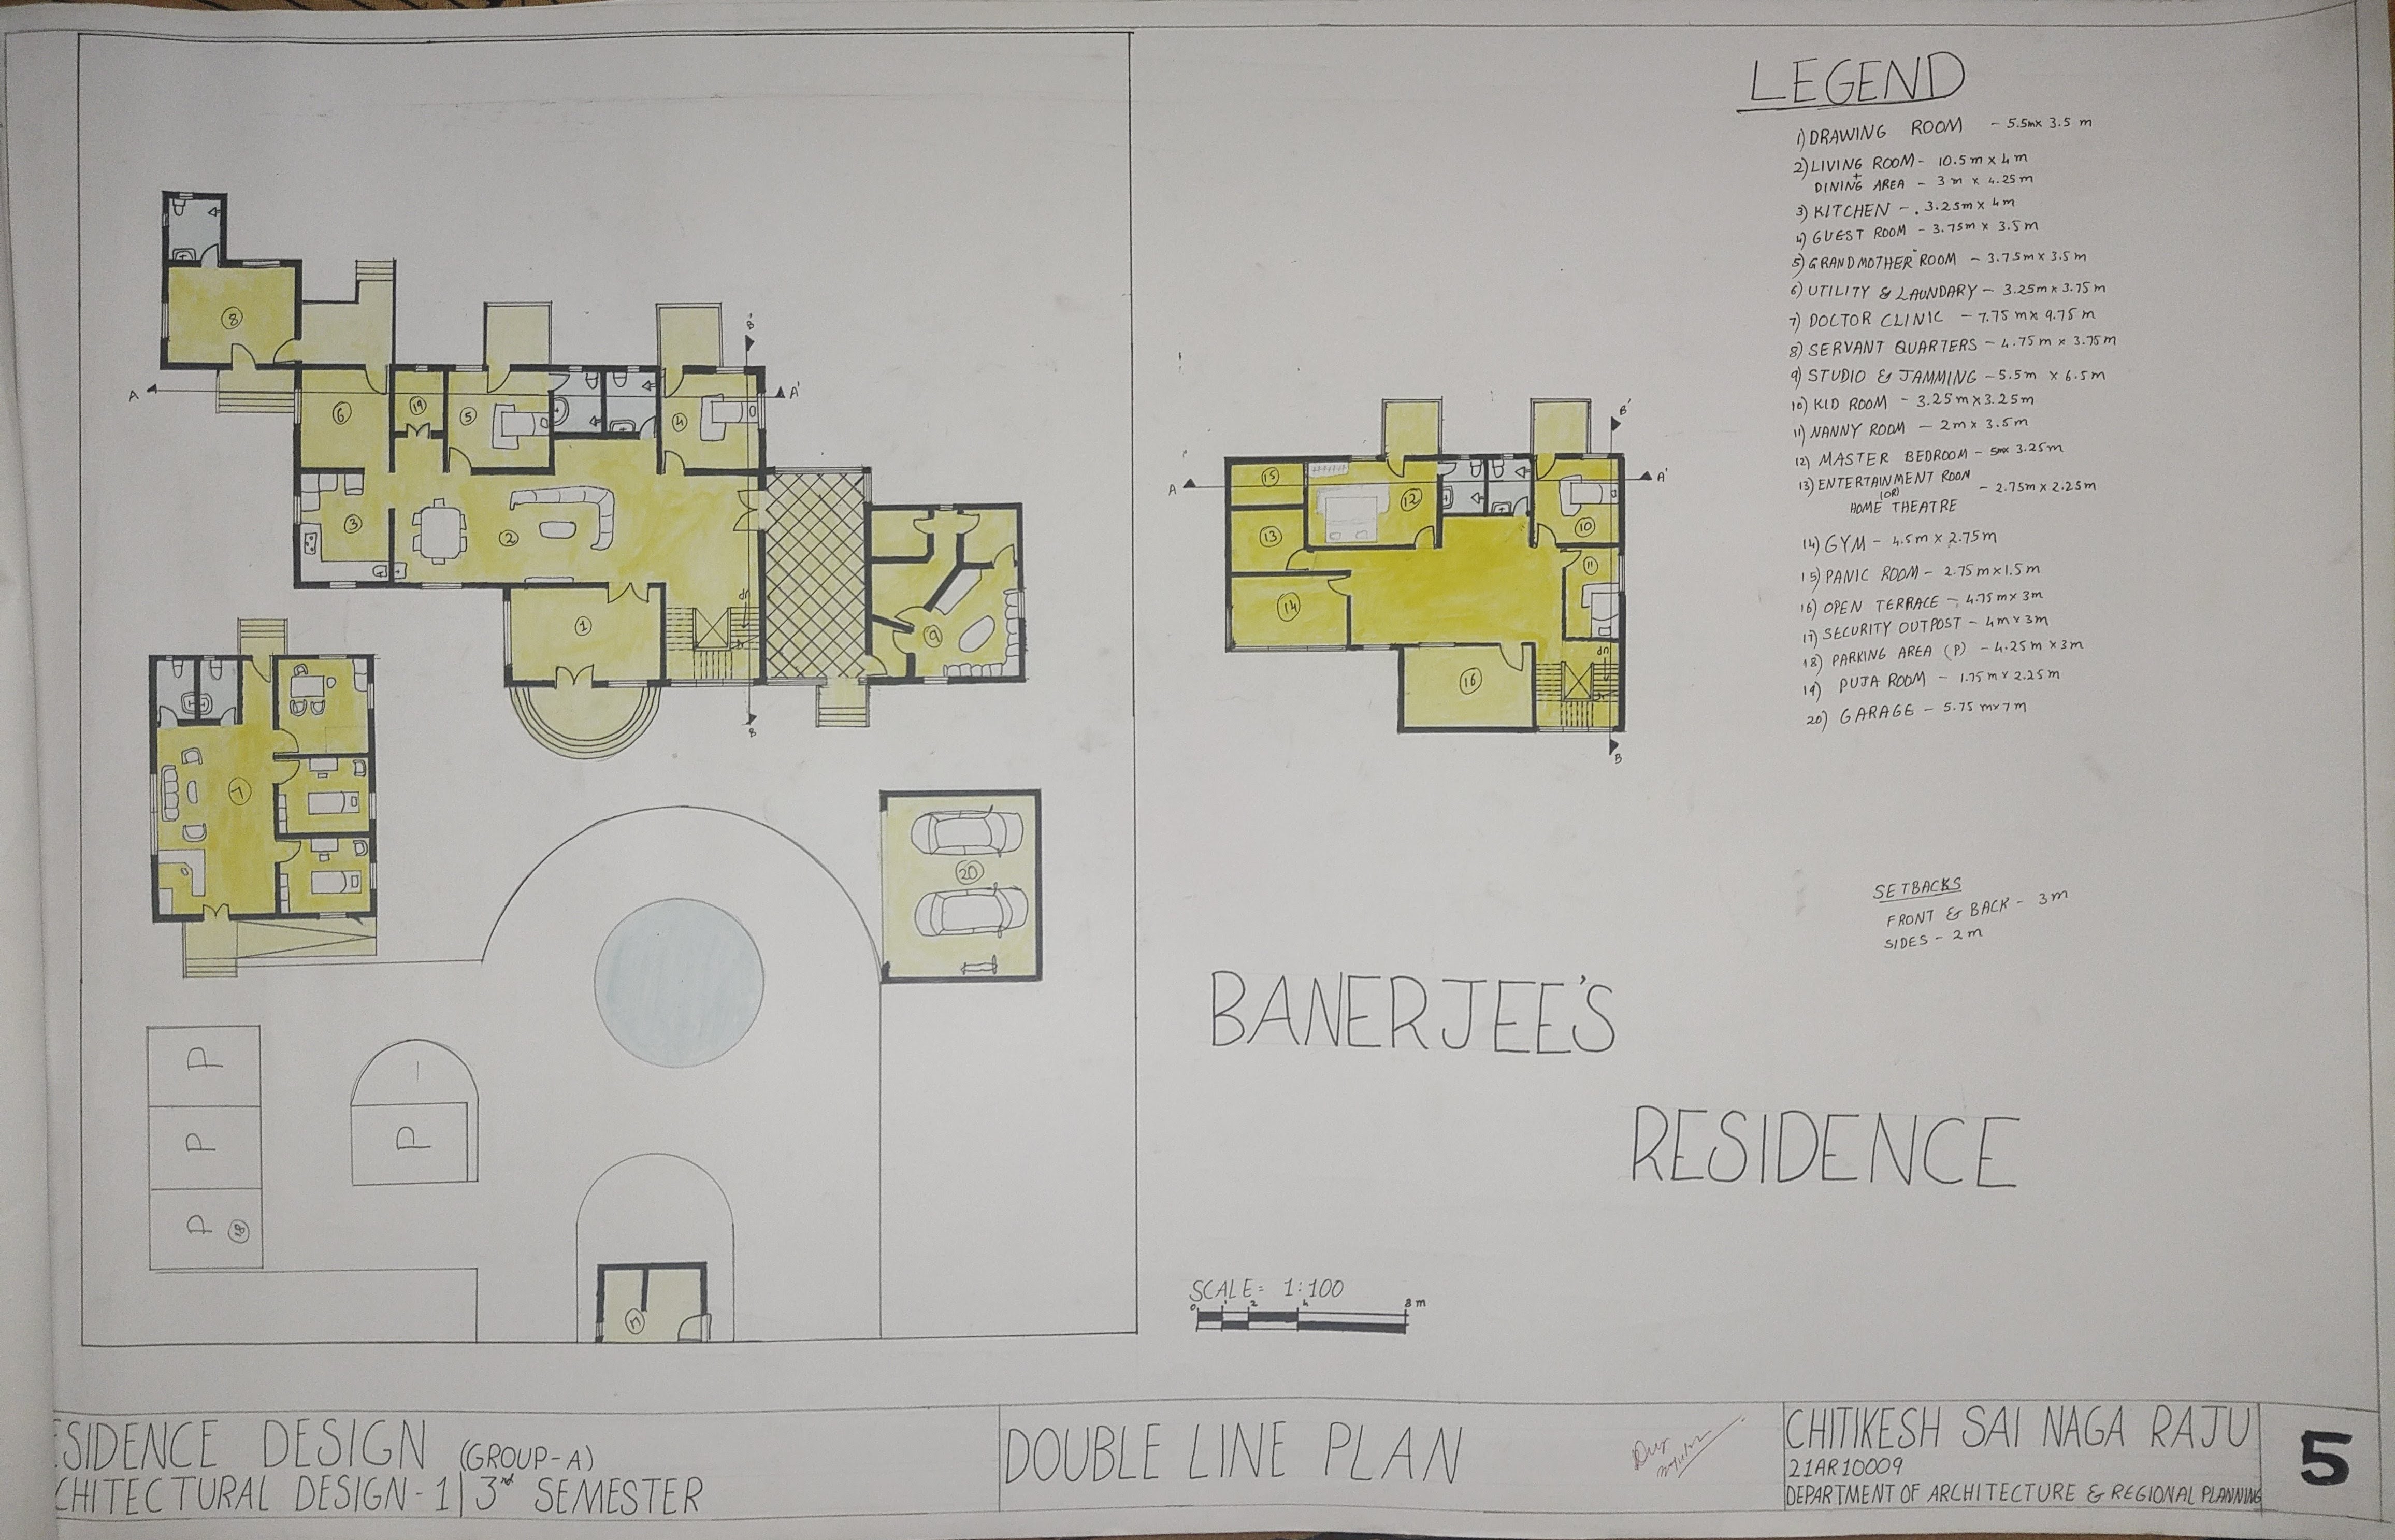 LEGEND
1) DRAWING ROOM - 5.5m x 3.5 m
2) LIVING ROOM - 10.5 m x 4 m
+
DINING AREA - 3 m x 4.25 m
3) KITCHEN - 3.25m x 4 m
4) GUEST ROOM - 3.75m x 3.5 m
5) GRANDMOTHER ROOM - 3.75 m x 3.5 m
6) UTILITY & LAUNDARY - 3.25m x 3.75 m
7) DOCTOR CLINIC - 7.75 m x 9.75 m
8) SERVANT QUARTERS - 4.75 m x 3.75 m
9) STUDIO & JAMMING - 5.5 m x 6.5 m
10) KID ROOM - 3.25m x 3.25m
11) NANNY ROOM - 2m x 3.5m
12) MASTER BEDROOM - 5m x 3.25m
13) ENTERTAINMENT ROOM
(OR) - 2.75m x 2.25m
HOME THEATRE
14) GYM - 4.5 m x 2.75m
15) PANIC ROOM - 2.75 m x 1.5 m
16) OPEN TERRACE - 4.75 m x 3m
17) SECURITY OUTPOST - 4m x 3m
18) PARKING AREA (P) - 4.25m x 3m
19) PUJA ROOM - 1.75 m x 2.25m
20) GARAGE - 5.75 m x 7m
8
B'
A
A'
6
19
5
4
3
2
1
dn
up
9
B
7
20
P
P
P
18
P
17
B'
A
A'
15
12
13
10
11
14
16
dn
up
B
SETBACKS
FRONT & BACK - 3 m
SIDES - 2 m
BANERJEE'S
RESIDENCE
SCALE = 1:100
0 1 2 4 8 m
ESIDENCE DESIGN (GROUP-A)
CHITECTURAL DESIGN - 1 | 3rd SEMESTER
DOUBLE LINE PLAN
CHITIKESH SAI NAGA RAJU
21AR10009
DEPARTMENT OF ARCHITECTURE & REGIONAL PLANNING
5